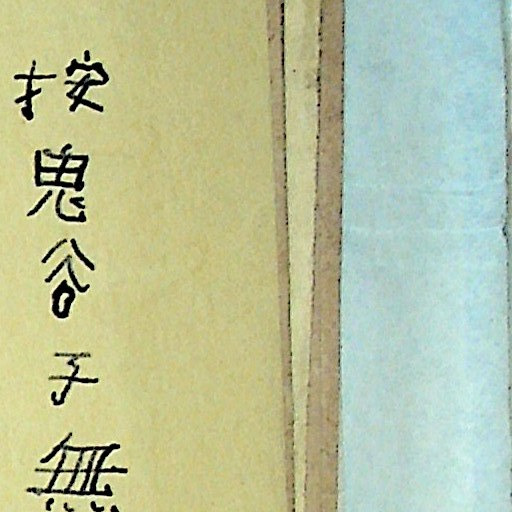 按鬼谷子無